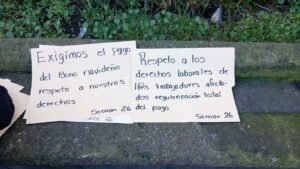 Exigimos el pago
del Bono navideño
respeto a nuestros
derechos
Seccion 26
Respeto a los
derechos laborales de
los trabajadores afecta-
dos regularización total
del pago
Seccion 26